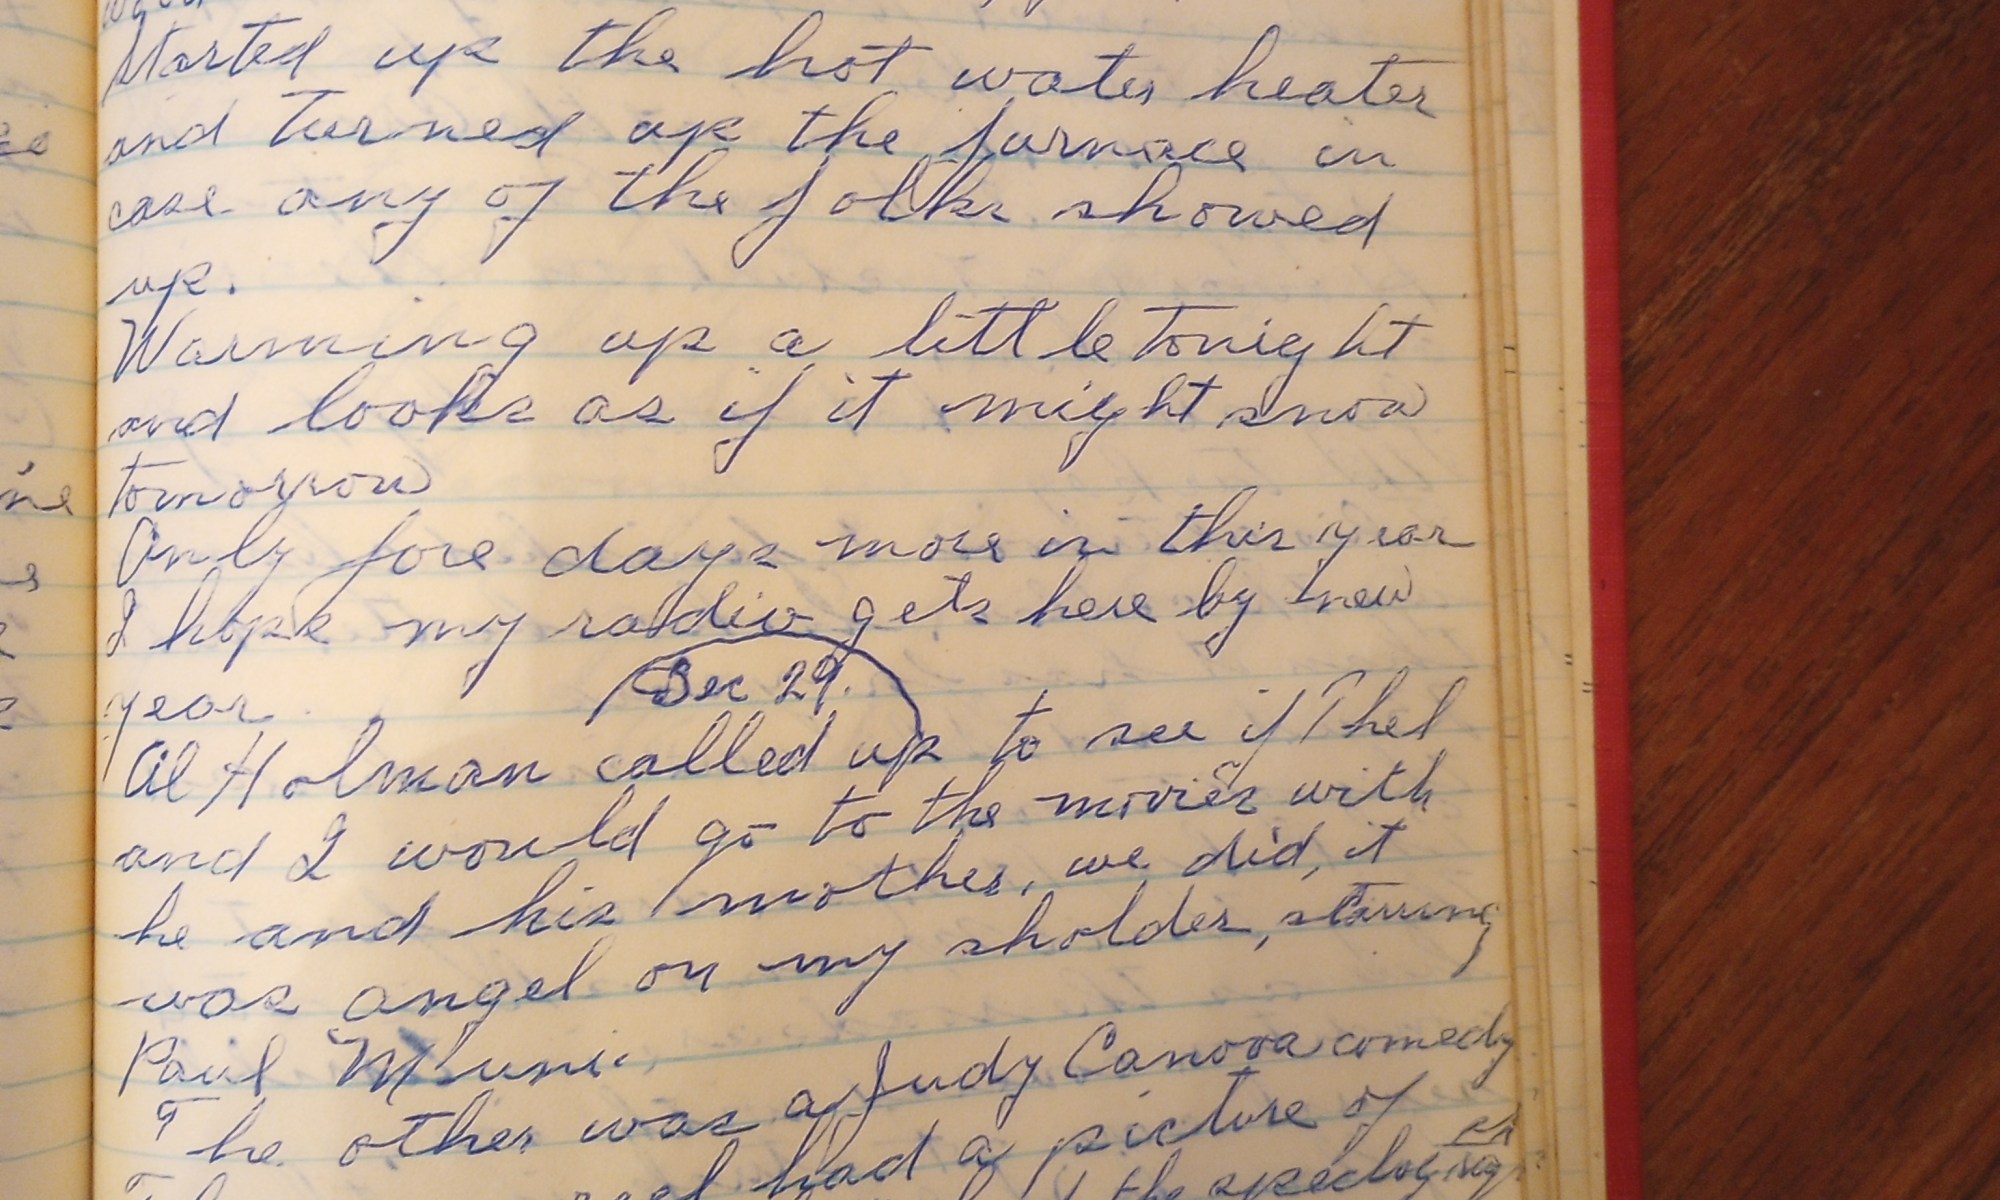 Started up the hot water heater
and turned up the furnace in
case any of the folks showed
up.
Warming up a little tonight
and looks as if it might snow
tomorrow
Only fore days more in this year
I hope my radio gets here by new
year.
Dec 29.
Al Holman called up to see if Thel
and I would go to the movies with
he and his mother, we did, it
was angel on my sholder, starring
Paul Muni.
The other was a Judy Canova comedy
reel had a picture of
the